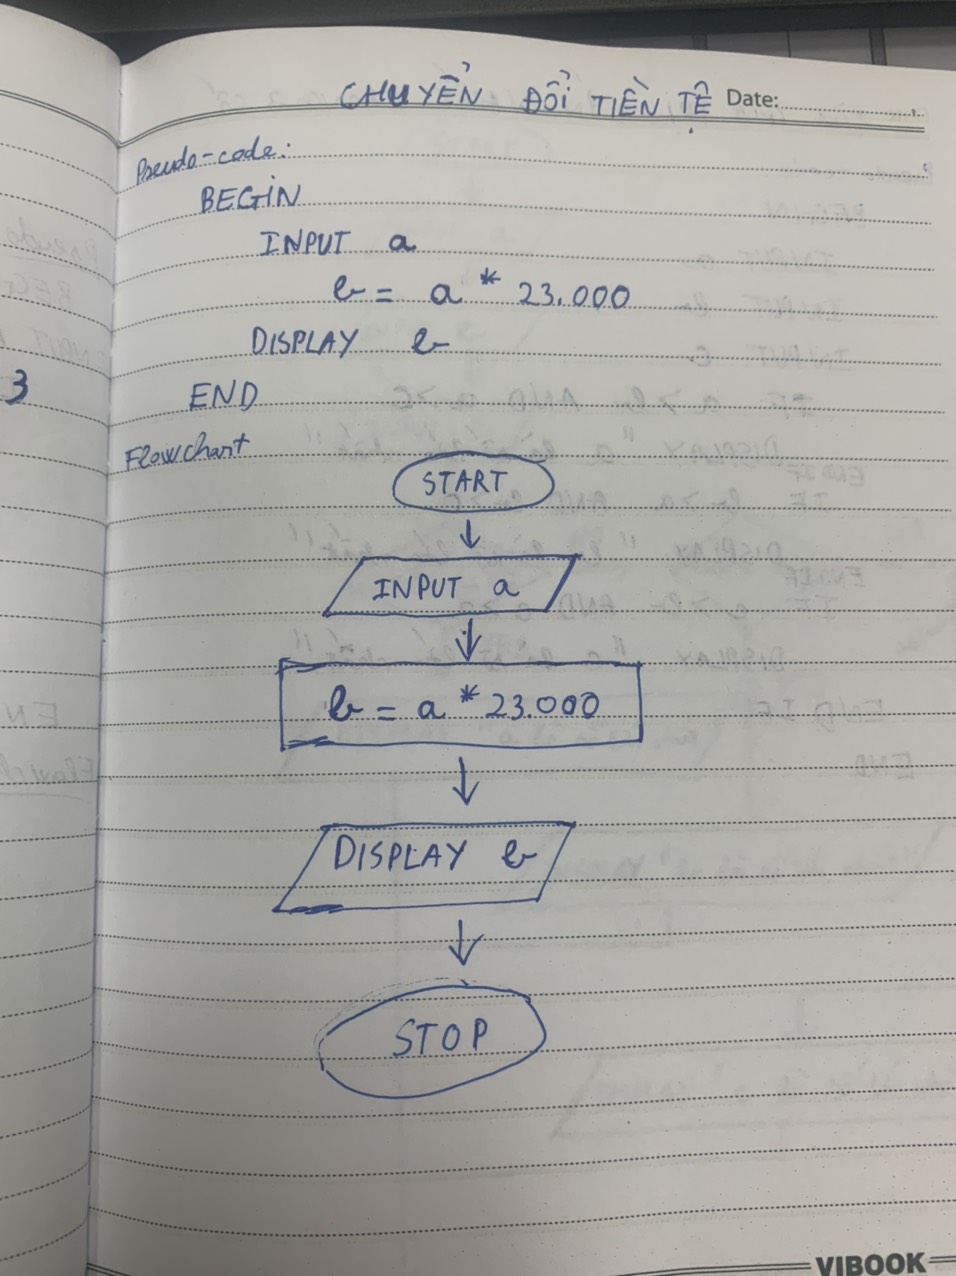 CHUYỂN ĐỔI TIỀN TỆ Date:
Pseudo-code:
BEGIN
INPUT a
b = a * 23.000
DISPLAY b
3
END
Flowchart
START
INPUT a
b = a * 23.000
DISPLAY b
STOP
VIBOOK